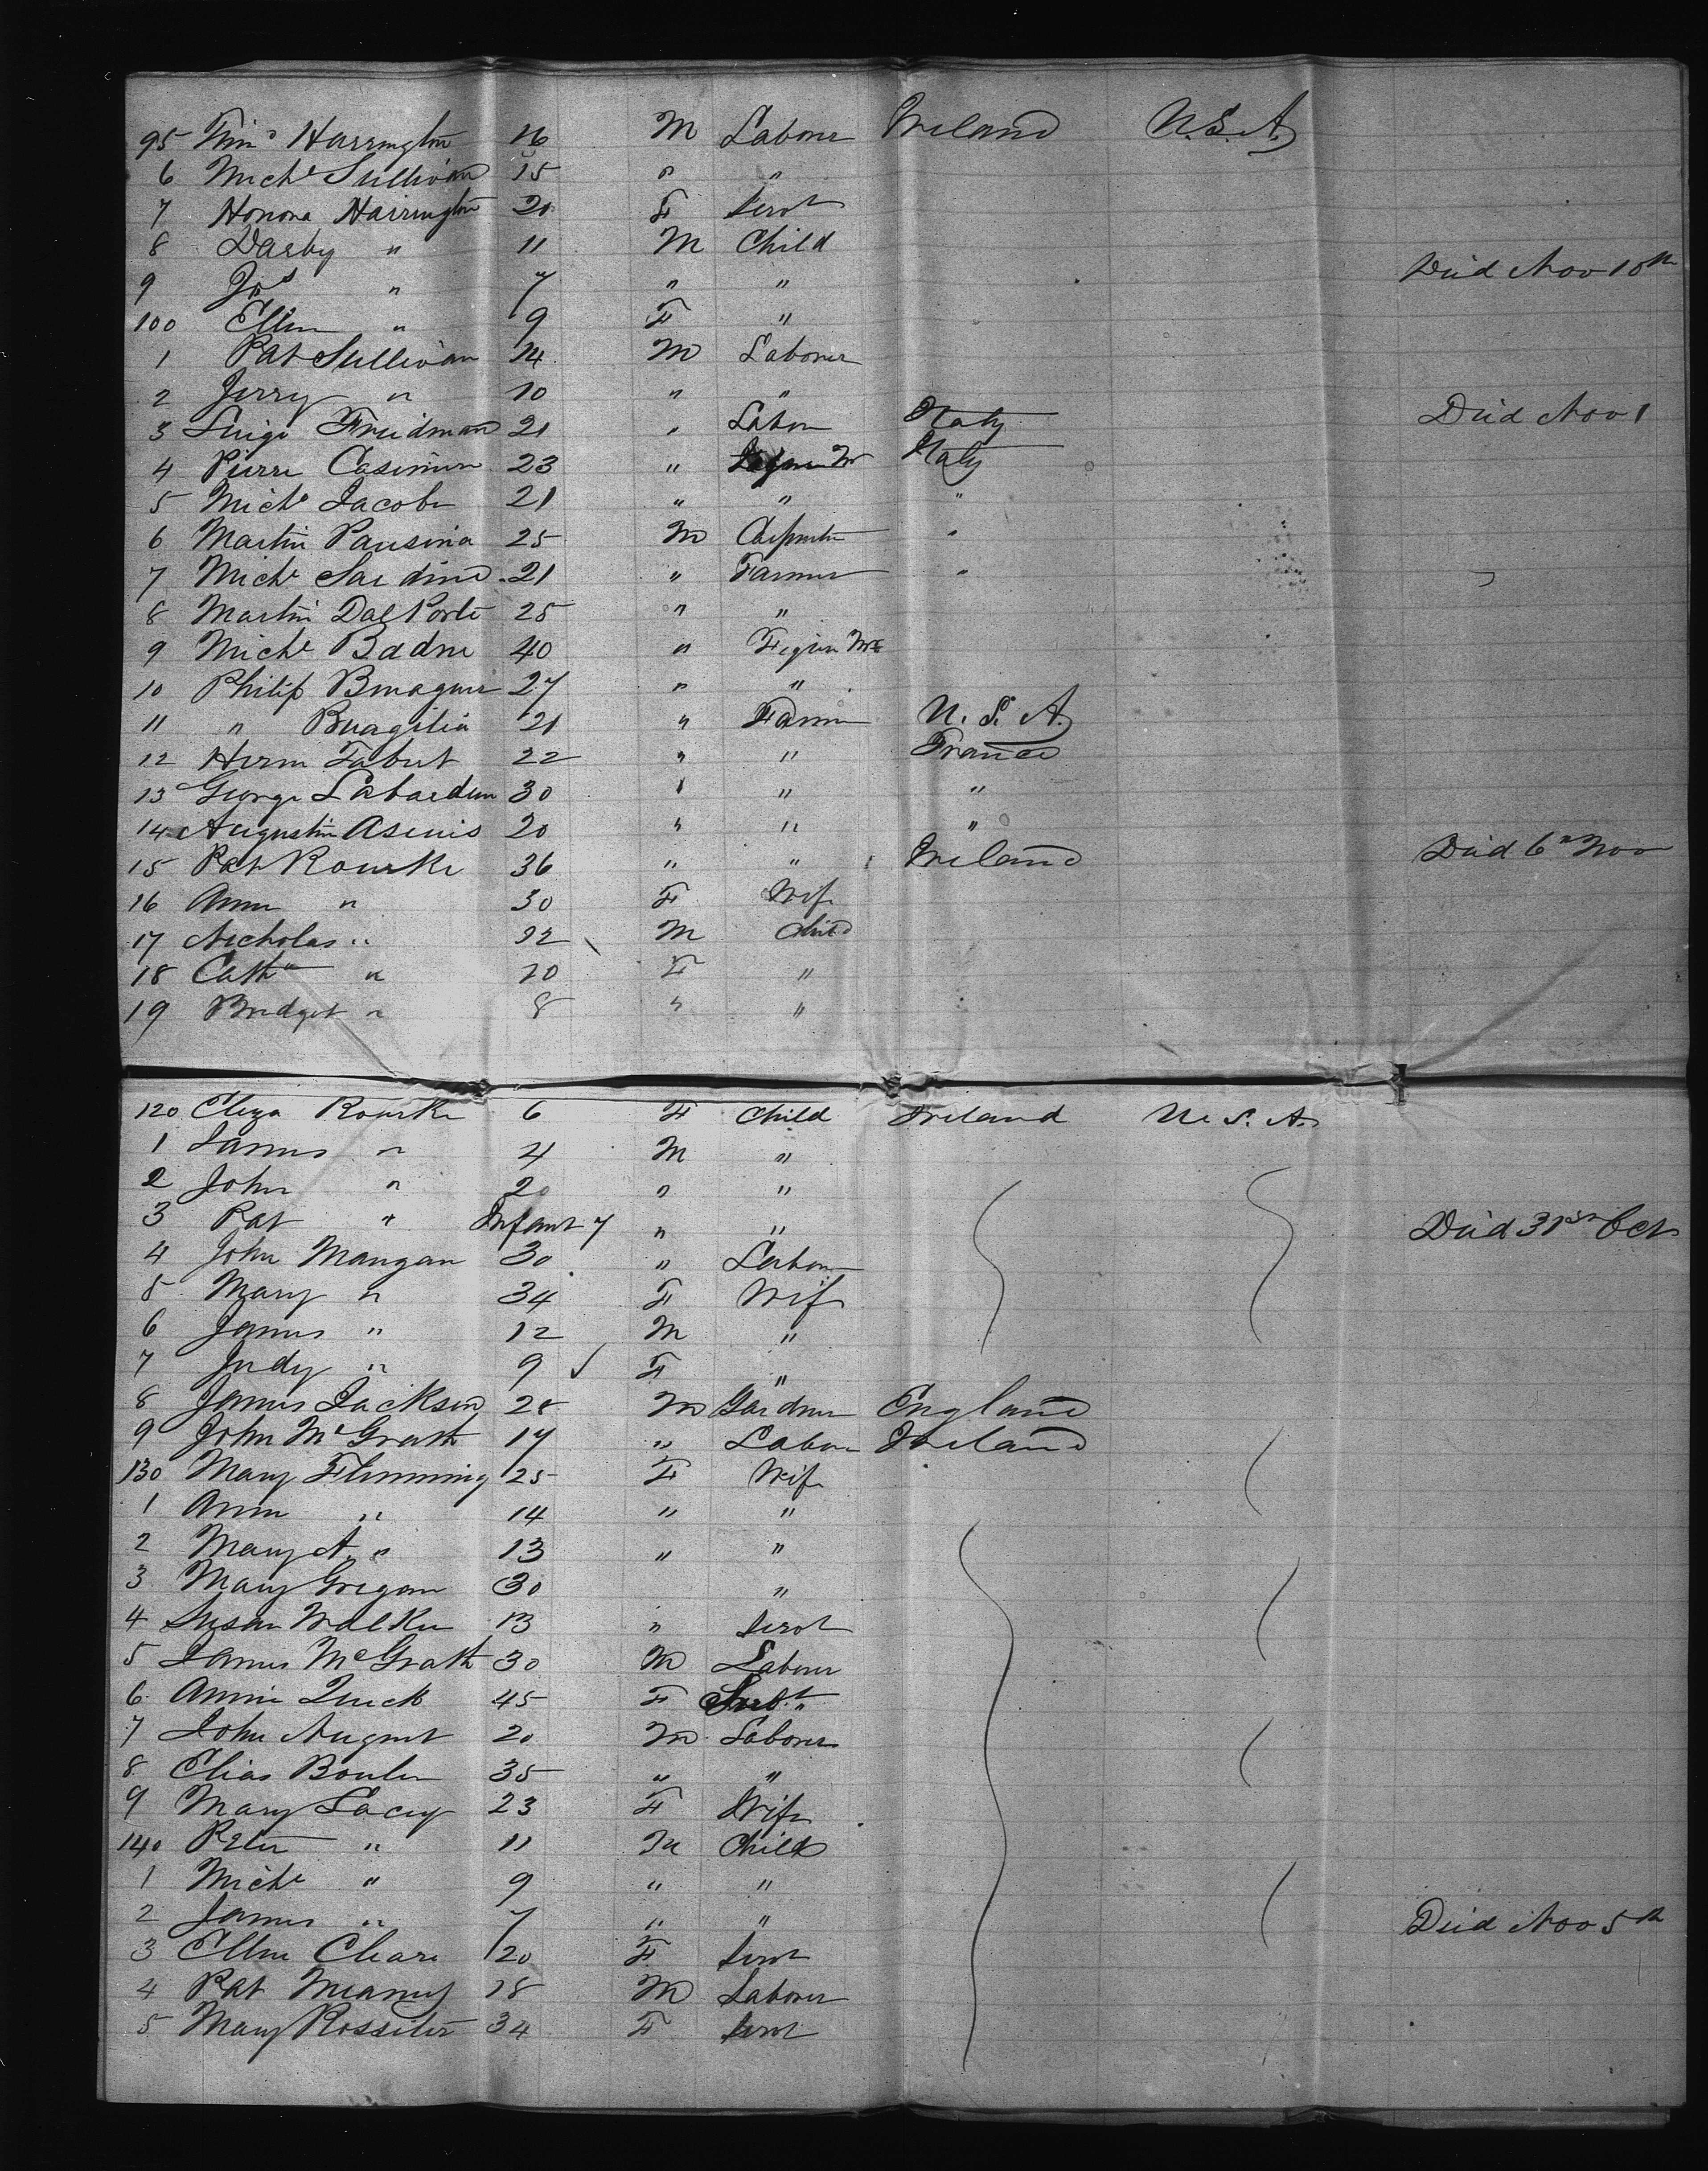 95 Tim° Harrington 16 M Laborer Ireland U.S.A.
6 Michl Sullivan 15 " "
7 Honora Harrington 20 F Servt
8 Darby " 11 M Child
9 Jos " 7 " " Died Nov 10th
100 Ellen " 9 F "
1 Pat Sullivan 14 M Laborer
2 Jerry " 10 " "
3 Luigi Freidman 21 " Labor Italy Died Nov 1
4 Pierre Casimire 23 " Italy
5 Michl Jacobi 21 " " "
6 Martin Pausina 25 M Carpenter "
7 Michl Sardino 21 " Farmer "
8 Martin Dal Porte 25 " "
9 Michl Badne 40 " Figure Mr
10 Philip 27 " "
11 " Buagilia 21 " Farmer U.S.A.
12 Herm Tabert 22 " " France
13 George Labardun 30 " " "
14 Augustin Asenis 20 " " "
15 Pat Rourke 36 " " Ireland Died 6th Nov
16 Ann " 30 F Wife
17 Nicholas " 12 M Child
18 Cathn " 10 F "
19 Bridget " 8 " "
120 Eliza Rourke 6 F Child Ireland U.S.A.
1 James " 4 M "
2 John " 2 " "
3 Pat " Infant 7 " " Died 31st Oct
4 John Mangan 30 " Labor
5 Mary " 34 F Wife
6 James " 12 M "
7 Judy " 9 F "
8 James Jackson 28 M Gardner England
9 John McGrath 17 " Labor Ireland
130 Mary Flemming 25 F Wife
1 Ann " 14 " "
2 Mary A. " 13 " "
3 Mary Gregan 30 "
4 Susan Walker 13 " Servt
5 James McGrath 30 M Laborer
6 Annie Quick 45 F Servt "
7 John August 20 M Laborer
8 Elias Bouler 35 " "
9 Mary Lacey 23 F Wife
140 Peter " 11 M Child
1 Michl " 9 " "
2 James " 7 " " Died Nov 5th
3 Ellen Cleare 20 F Servt
4 Pat Meaney 18 M Laborer
5 Mary Rossiter 34 F Servt